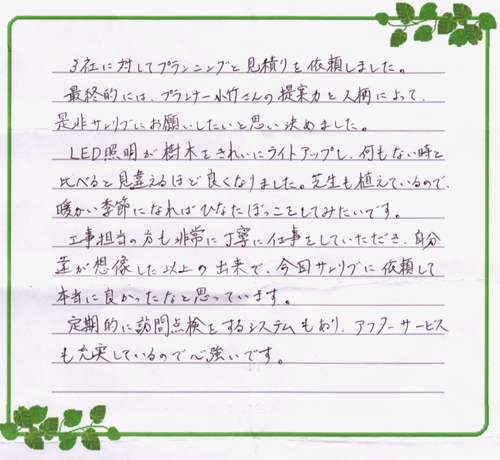 3社に対してプランニングと見積りを依頼しました。
最終的には、プランナー小竹さんの提案力と人柄によって、
是非サンリブにお願いしたいと思い決めました。
LED照明が樹木をきれいにライトアップし、何もない時と
比べると見違えるほど良くなりました。芝生も植えているので、
暖かい季節になればひなたぼっこをしてみたいです。
工事担当の方も非常に丁寧に仕事をしていただき、自分
達が想像した以上の出来で、今回サンリブに依頼して
本当に良かったなと思っています。
定期的に訪問点検をするシステムもあり、アフターサービス
も充実しているので心強いです。